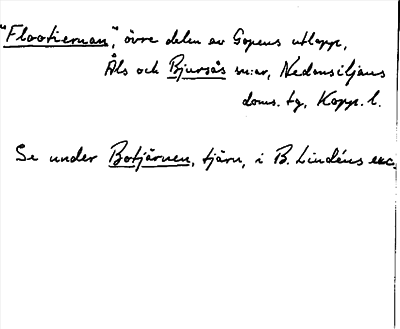 "Flootiernan", övre delen av Gopens utlopp,
Åls och Bjursås sn:ar, Nedansiljans
doms. tg, Kopp. l.
Se under Botjärnen, tjärn, i B. Lindéns exc.